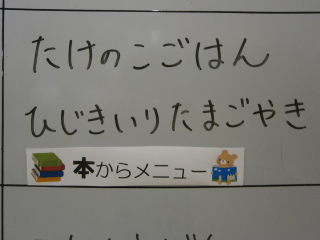 たけのこごはん
ひじきいりたまごやき
本からメニュー